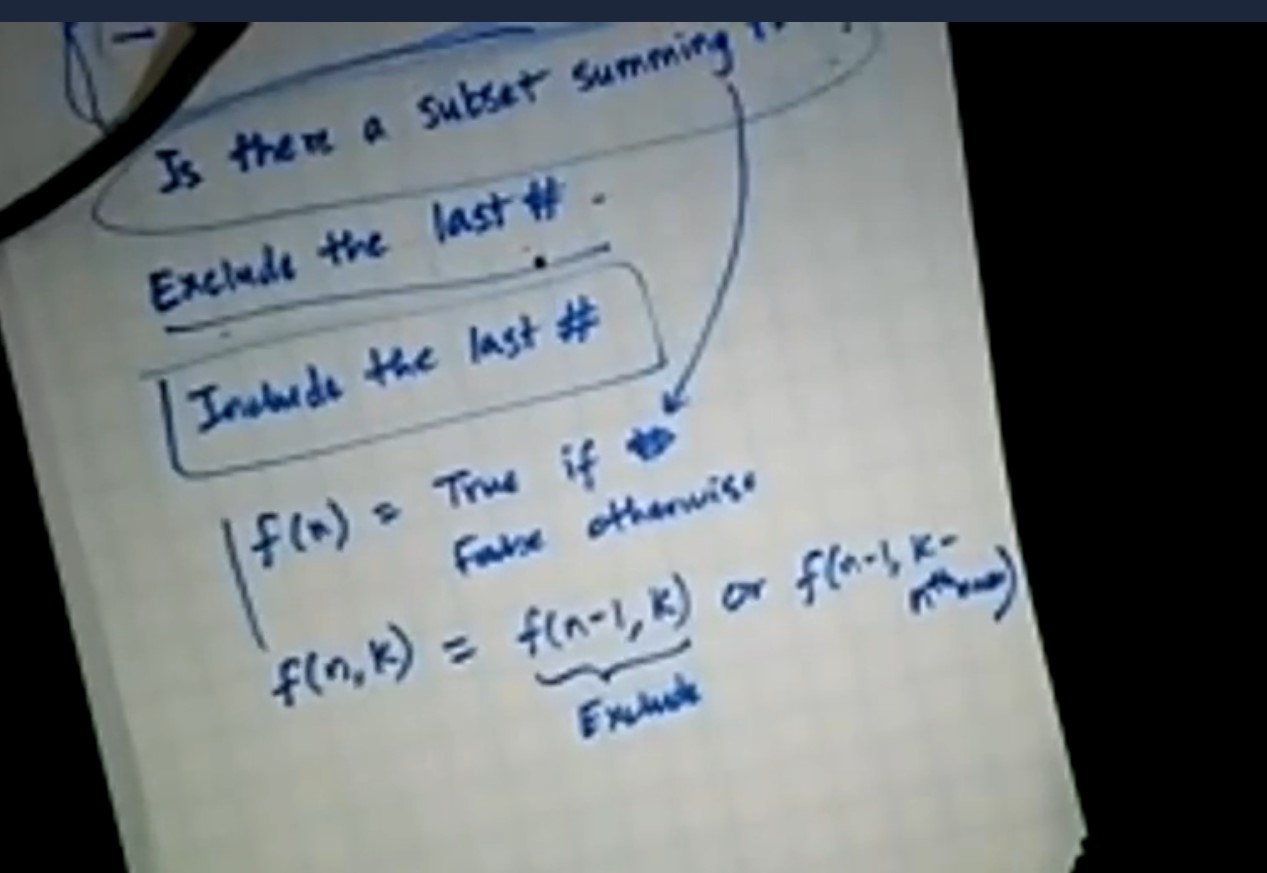 Is there a subset summing
Exclude the last #
Include the last #
f(n) = True if
False otherwise
f(n,k) = f(n-1,k) or f(n-1, k-
nth
Exclude